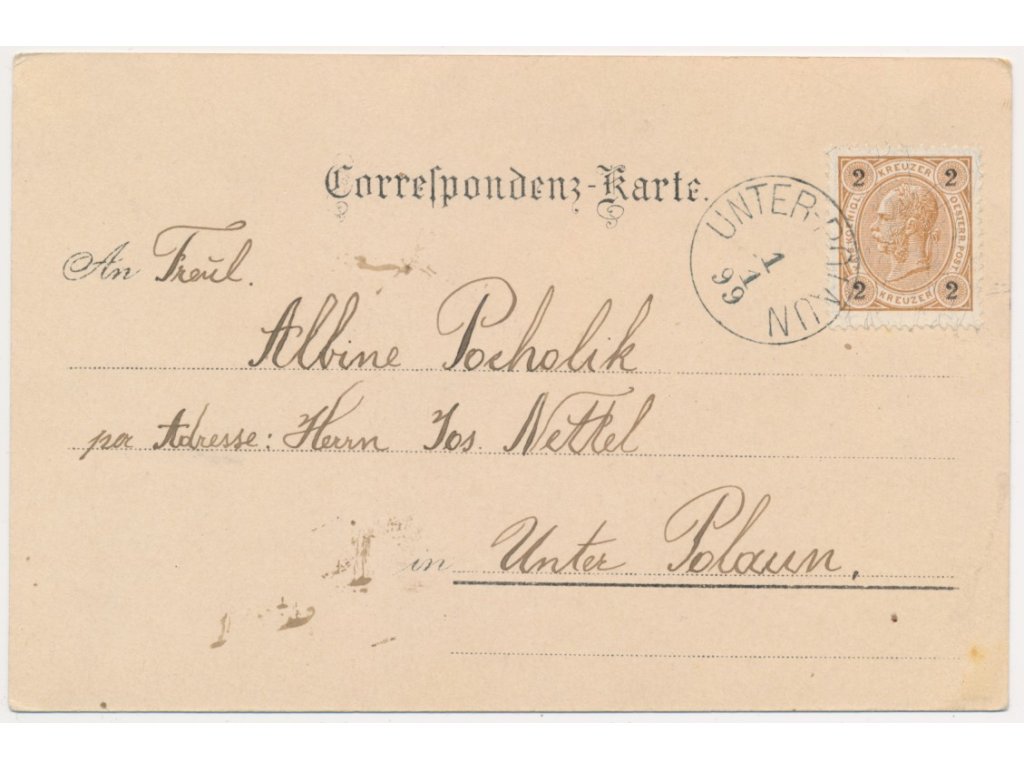 Correspondenz-Karte.
2 KREUZER 2
KÖNIGL.
OESTERR. POST
2 KREUZER 2
UNTER-POLAUN
1
1
99
An Freül.
Albine Pocholik
per Adresse: Herrn Jos. Nettel
in Unter Polaun,